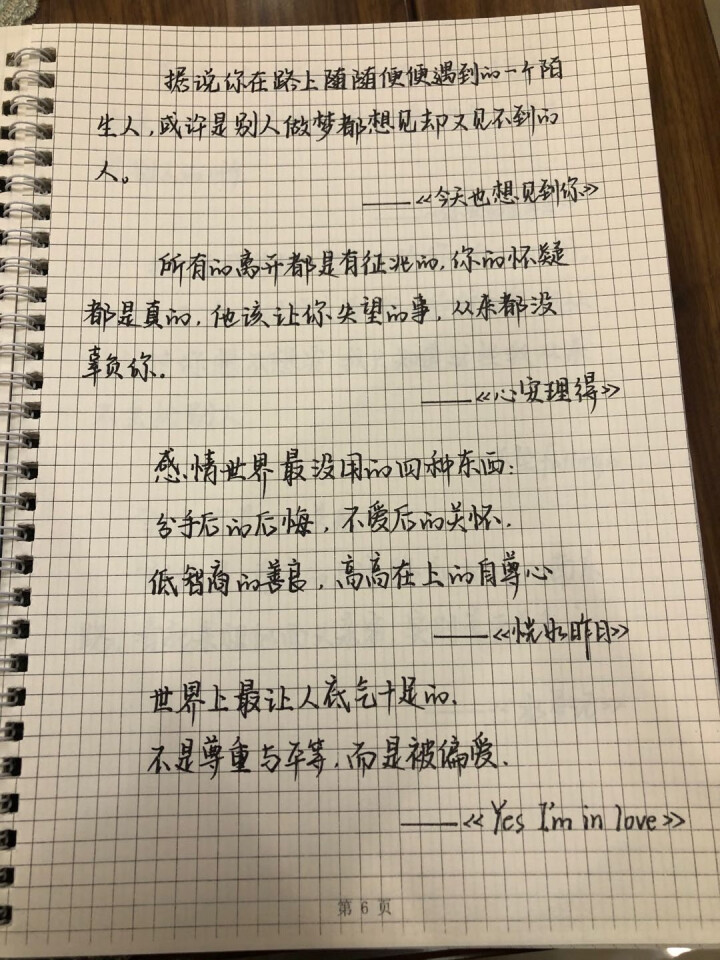 据说你在路上随随便便遇到的一个陌
生人，或许是别人做梦都想见却又见不到的
人。
——《今天也想见到你》
所有的离开都是有征兆的，你的怀疑
都是真的，他该让你失望的事，从来都没
辜负你。
——《心安理得》
感情世界最没用的四种东西：
分手后的后悔，不爱后的关怀，
低智商的善良，高高在上的自尊心
——《恍如昨日》
世界上最让人底气十足的，
不是尊重与平等，而是被偏爱，
——《Yes I'm in love》
第 6 页